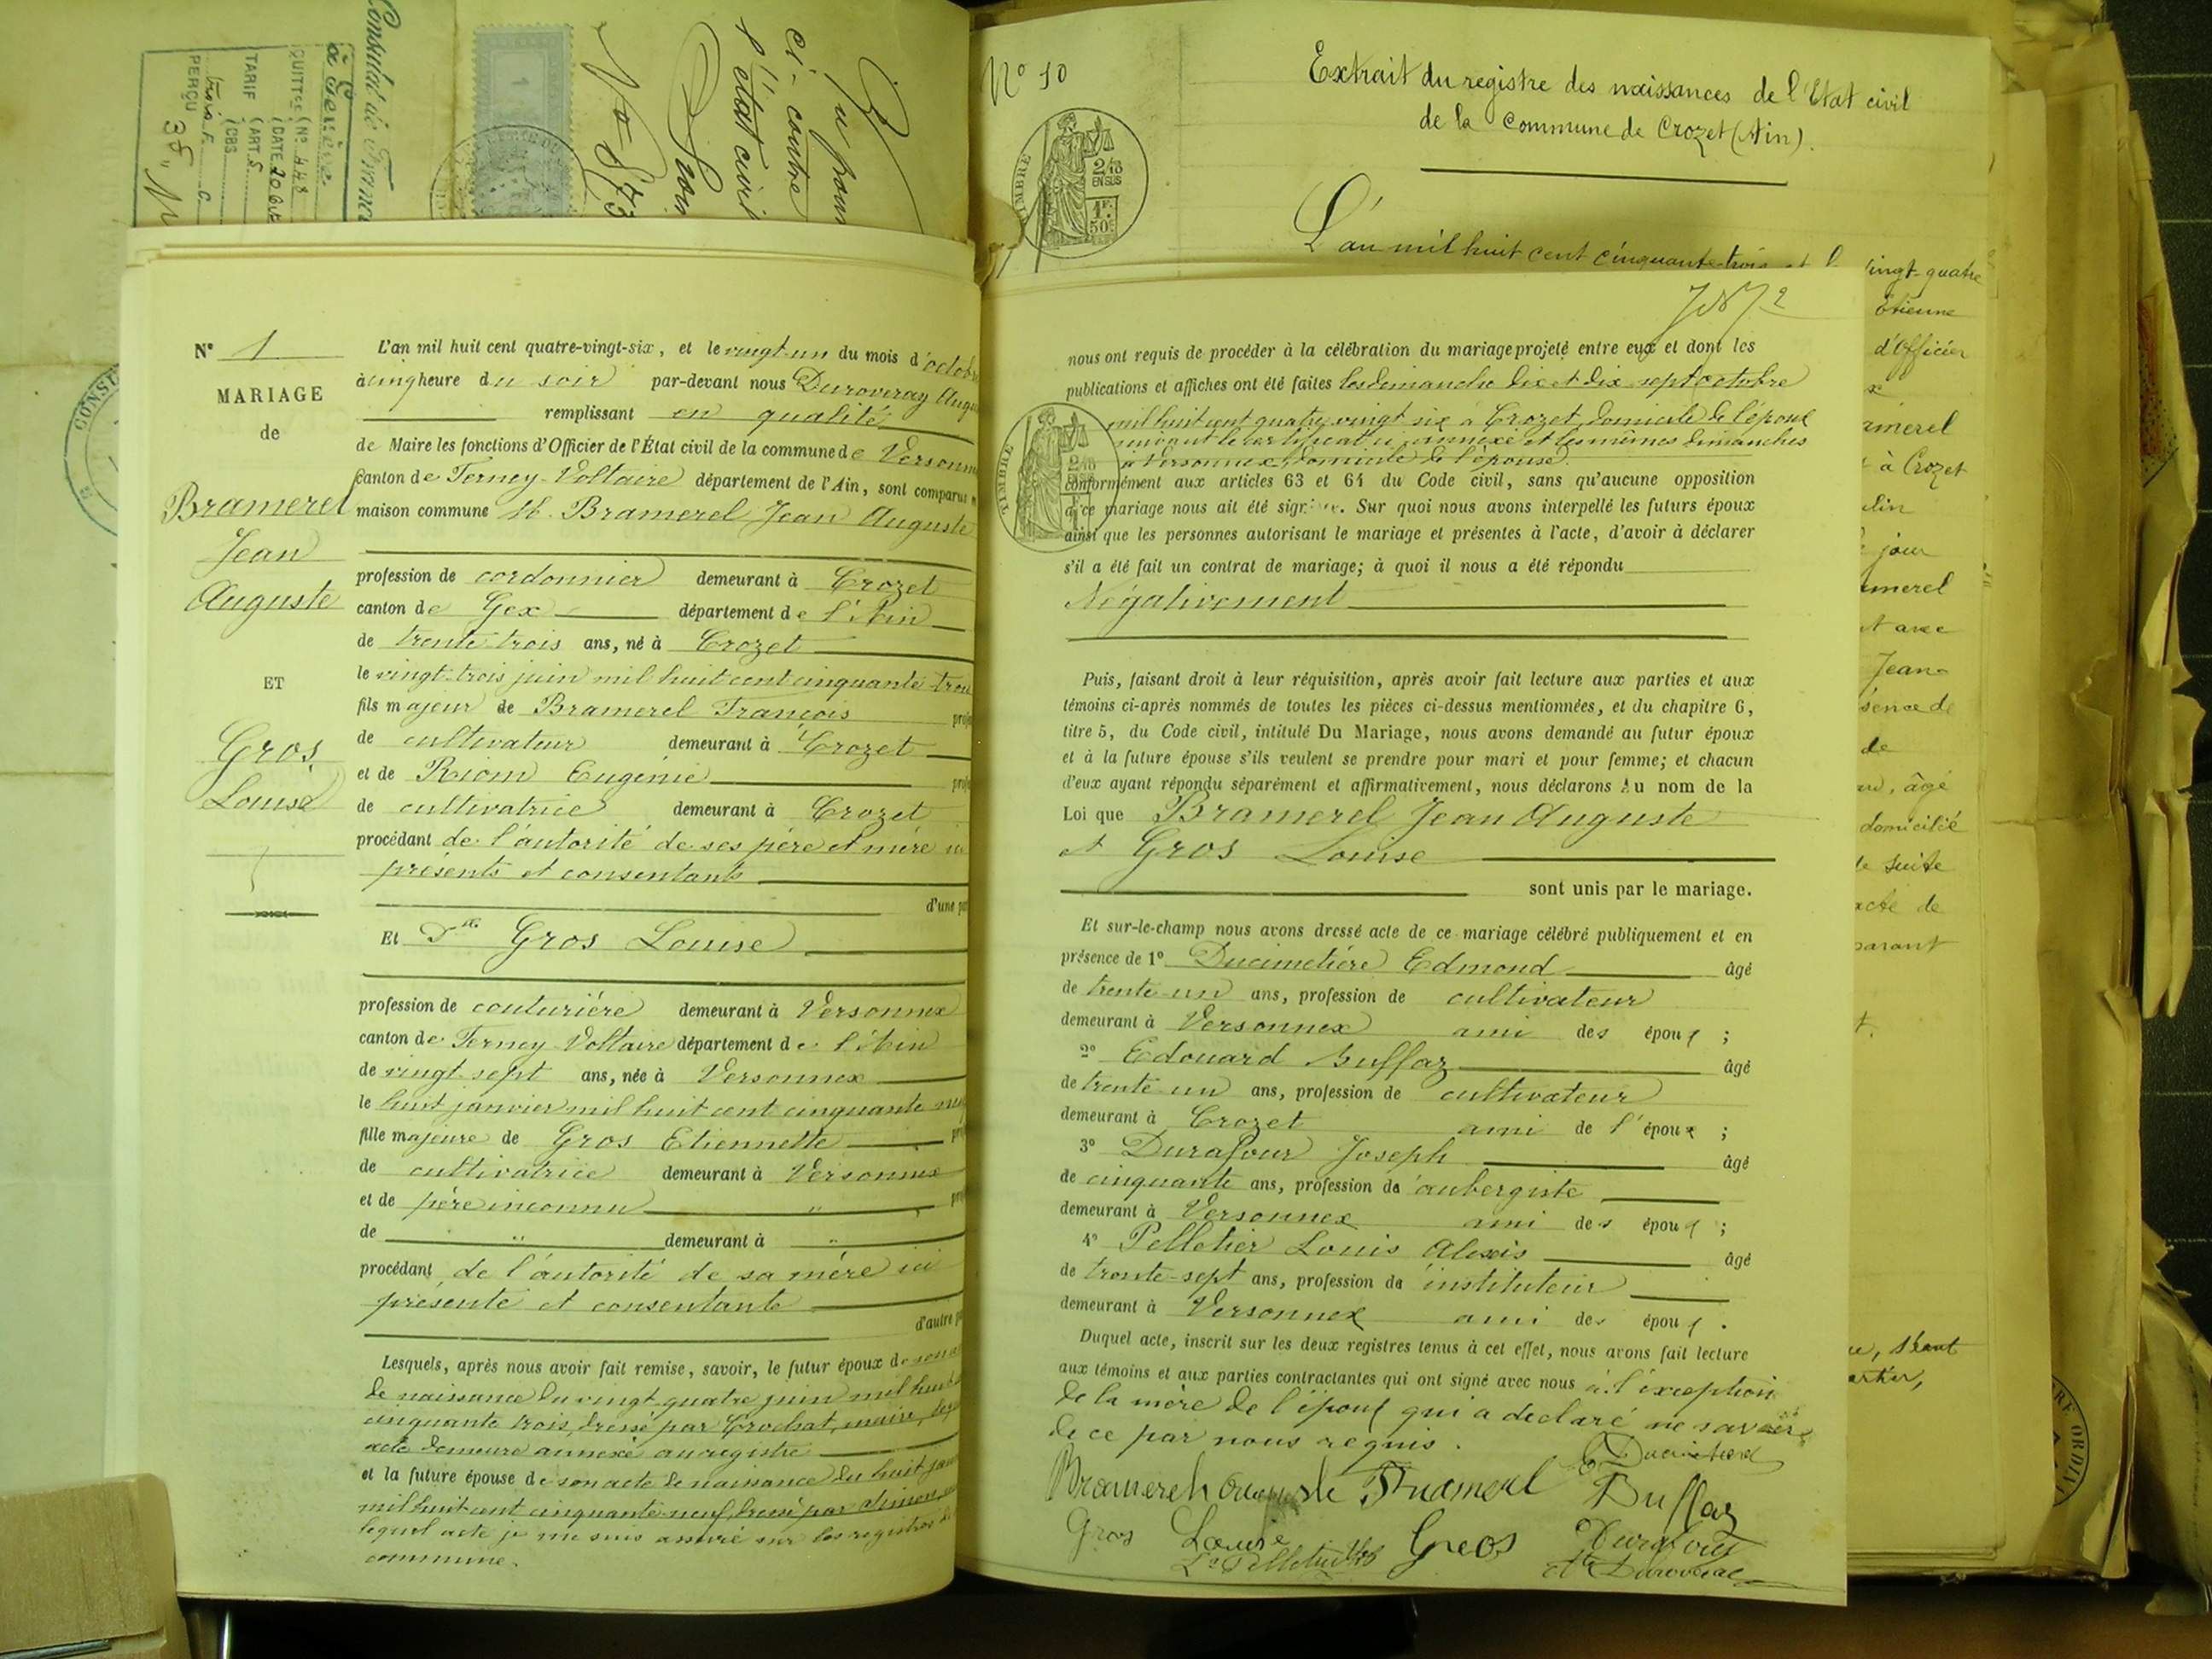 Consulat de France
à Genève
QUITTCE (N° 448
(DATE 20
TARIF (ART. 5
(OBS.
PERÇU trois F. C.
3F.
1
N° 873
Vu pour
ci-contre
l'état civil
N° 10
Extrait du registre des naissances de l'Etat civil
de la Commune de Crozet (Ain).
TIMBRE
2/10
EN SUS
1F.
50c
L'an mil huit cent cinquante-trois et l
CONSU
N° 1
MARIAGE
de
Bramerel
Jean
Auguste
ET
Gros
Louise
L'an mil huit cent quatre-vingt-six, et le vingt-un du mois d'octob
à cinq heure du soir par-devant nous Duroveray Augu
remplissant en qualité
de Maire les fonctions d'Officier de l'État civil de la commune de Versonn
Canton de Ferney-Voltaire département de l'Ain, sont comparus
maison commune M. Bramerel Jean Auguste
profession de cordonnier demeurant à Crozet
canton de Gex département de l'Ain
de trente-trois ans, né à Crozet
le vingt-trois juin mil huit cent cinquante-trois
fils majeur de Bramerel François prof
de cultivateur demeurant à Crozet
et de Riom Eugénie prof
de cultivatrice demeurant à Crozet
procédant de l'autorité de ses père et mère ici
présents et consentants
d'une par
Et Dlle Gros Louise
profession de couturière demeurant à Versonnex
canton de Ferney-Voltaire département de l'Ain
de vingt-sept ans, née à Versonnex
le huit janvier mil huit cent cinquante neuf
fille majeure de Gros Etiennette pro
de cultivatrice demeurant à Versonnex
et de père inconnu " pro
de " demeurant à "
procédant de l'autorité de sa mère ici
présente et consentante
d'autre p
Lesquels, après nous avoir fait remise, savoir, le futur époux de son
de naissance du vingt quatre juin mil huit
cinquante trois, dressé par Crochat, maire,
acte demeure annexé au registre
et la future épouse de son acte de naissance du huit jan
mil huit cent cinquante-neuf, dressé par
lequel acte je me suis assuré sur les registres de
commune.
2
nous ont requis de procéder à la célébration du mariage projeté entre eux et dont les
publications et affiches ont été faites les dimanche dix et dix-sept octobre
mil huit cent quatre vingt six à Crozet, domicile de l'époux
suivant le certificat ci-annexé et les mêmes dimanches
à Versonnex, domicile de l'épouse.
TIMBRE
2/10
conformément aux articles 63 et 64 du Code civil, sans qu'aucune opposition
à ce mariage nous ait été . Sur quoi nous avons interpellé les futurs époux
ainsi que les personnes autorisant le mariage et présentes à l'acte, d'avoir à déclarer
s'il a été fait un contrat de mariage; à quoi il nous a été répondu
Négativement
Puis, faisant droit à leur réquisition, après avoir fait lecture aux parties et aux
témoins ci-après nommés de toutes les pièces ci-dessus mentionnées, et du chapitre 6,
titre 5, du Code civil, intitulé Du Mariage, nous avons demandé au futur époux
et à la future épouse s'ils veulent se prendre pour mari et pour femme; et chacun
d'eux ayant répondu séparément et affirmativement, nous déclarons Au nom de la
Loi que Bramerel Jean Auguste
et Gros Louise
sont unis par le mariage.
Et sur-le-champ nous avons dressé acte de ce mariage célébré publiquement et en
présence de 1° Ducimetière Edmond âgé
de trente-un ans, profession de cultivateur
demeurant à Versonnex ami des époux ;
2° Edouard Buffaz âgé
de trente-un ans, profession de cultivateur
demeurant à Crozet ami de l'époux ;
3° Durafour Joseph âgé
de cinquante ans, profession de aubergiste
demeurant à Versonnex ami des époux ;
4° Pelletier Louis Alexis âgé
de trente-sept ans, profession de instituteur
demeurant à Versonnex ami des époux .
Duquel acte, inscrit sur les deux registres tenus à cet effet, nous avons fait lecture
aux témoins et aux parties contractantes qui ont signé avec nous à l'exception
de la mère de l'époux qui a declaré ne savoir
de ce par nous requis.
Bramerel Auguste Bramerel
Buffaz
Gros Louise Gros Durafour
Ls Pelletier
Duroveray
vingt-quatre
Etienne
d'Officier
x
amerel
à Crozet
jour
amerel
t avec
Jean
sence de
de
âgé
domicilié
de suite
acte de
parant
t.
ORDIN